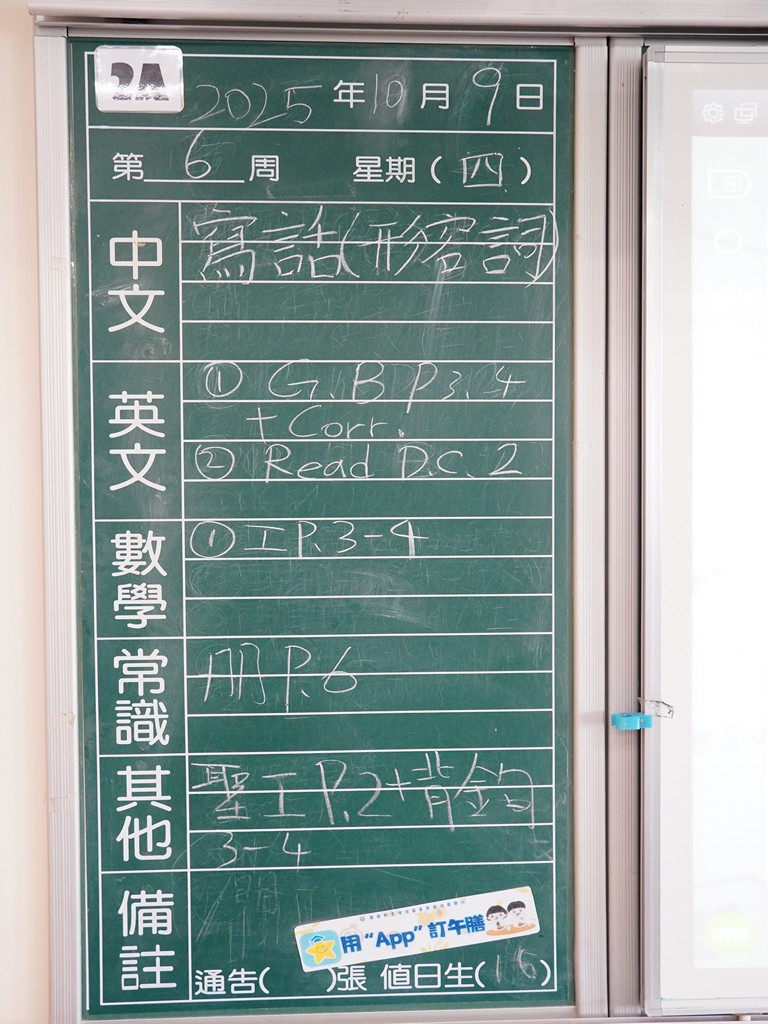 2A
2025年10月9日
第6周 星期(四)
中文
寫話(形容詞)
英文
① G.B P3.4
+ Corr.
② Read D.C. 2
數學
① 工 P.3-4
常識
册 P.6
其他
聖工 P.2+背金句
3-4
備註
用“App”訂午膳
通告( )張 值日生(16)